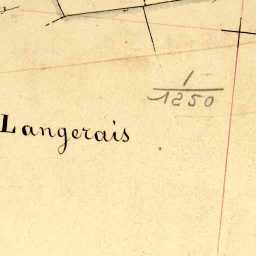 1
1250
Langerais